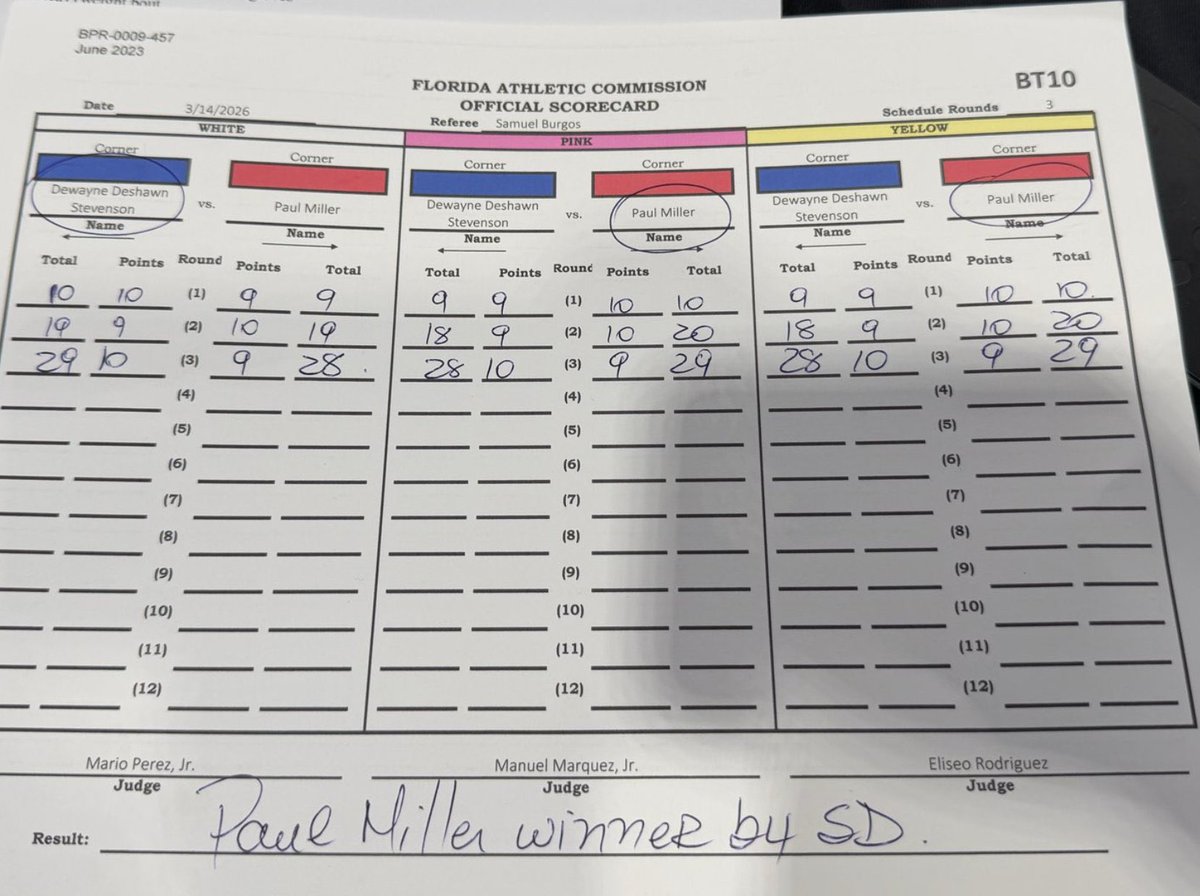 BPR-0009-457
June 2023
BT10
FLORIDA ATHLETIC COMMISSION
OFFICIAL SCORECARD
Date 3/14/2026 Referee Samuel Burgos Schedule Rounds 3
WHITE PINK YELLOW
Corner Corner Corner Corner Corner Corner
Dewayne Deshawn Stevenson vs. Paul Miller Dewayne Deshawn Stevenson vs. Paul Miller Dewayne Deshawn Stevenson vs. Paul Miller
Name Name Name Name Name Name
Total Points Round Points Total Total Points Round Points Total Total Points Round Points Total
10 10 (1) 9 9 9 9 (1) 10 10 9 9 (1) 10 10.
19 9 (2) 10 19 18 9 (2) 10 20 18 9 (2) 10 20
29 10 (3) 9 28. 28 10 (3) 9 29 28 10 (3) 9 29
(4) (4) (4)
(5) (5) (5)
(6) (6) (6)
(7) (7) (7)
(8) (8) (8)
(9) (9) (9)
(10) (10) (10)
(11) (11) (11)
(12) (12) (12)
Mario Perez, Jr. Manuel Marquez, Jr. Eliseo Rodriguez
Judge Judge Judge
Result: Paul Miller winner by SD.